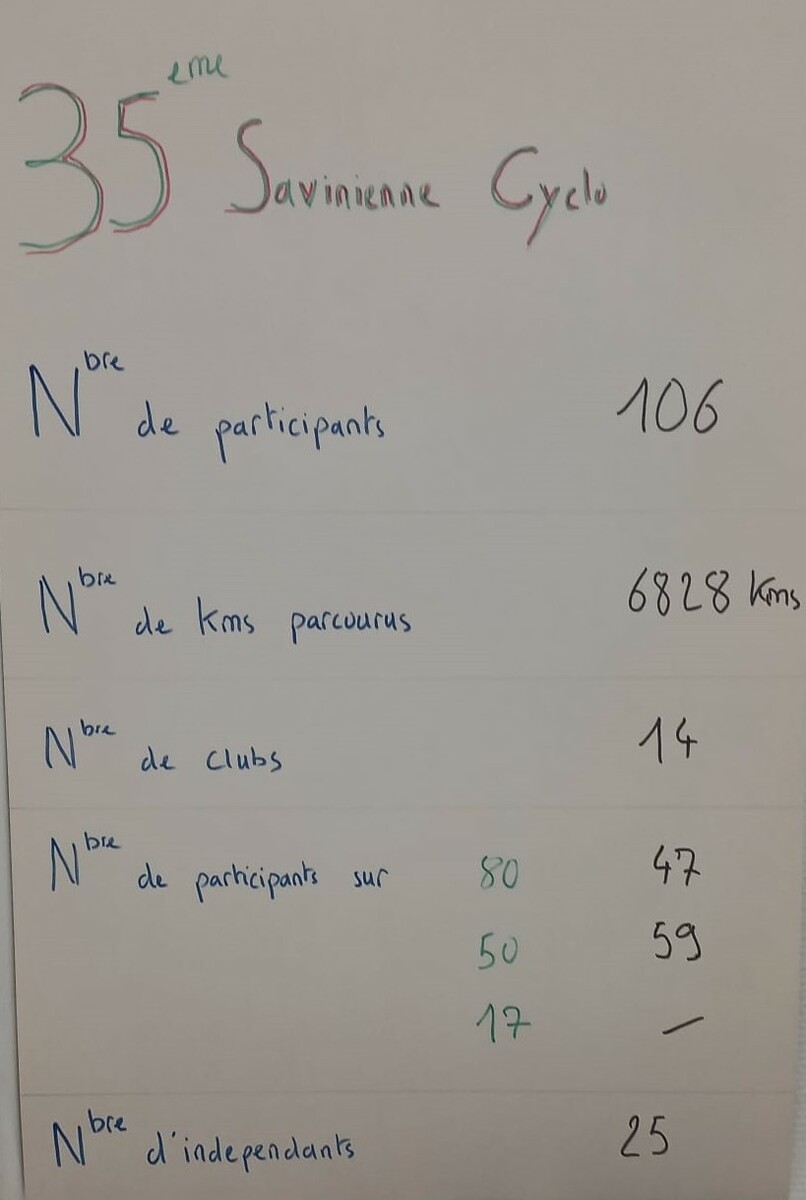 35eme Savinienne Cyclo
Nbre de participants 106
Nbre de kms parcourus 6828 kms
Nbre de clubs 14
Nbre de participants sur 80 47
50 59
17 —
Nbre d'independants 25